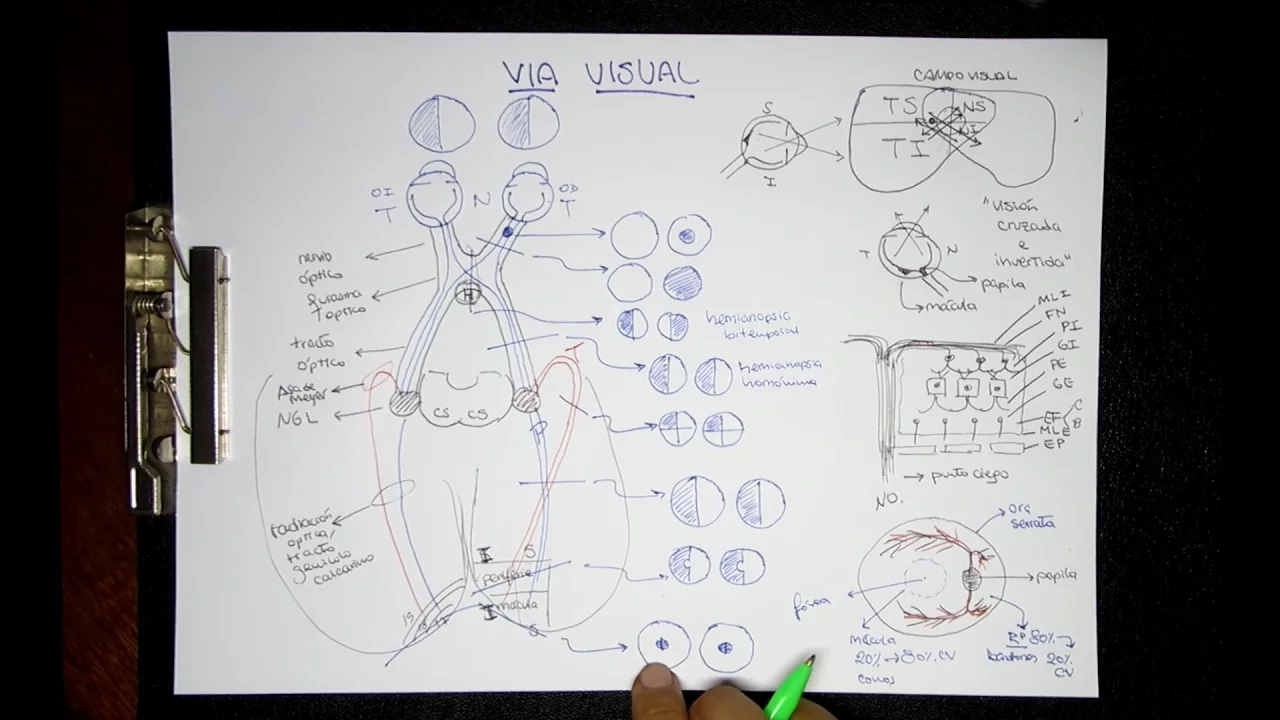 VIA VISUAL
OI
T
N
OD
T
nervio
óptico
Quiasma
óptico
tracto
óptico
Asa de
Meyer
NGL
CS CS
radiación
óptica/
tracto
genículo
calcarino
H
hemianopsia
bitemporal
hemianopsia
homónima
I S
periferia
mácula
I S
CAMPO VISUAL
S
I
TS NS
TI NI
"visión
cruzada
e
invertida"
T N
papila
mácula
MLI
FN
PI
GI
PE
GE
EF C
B
MLE
EP
→ punto ciego
NO.
ora
serrata
papila
fóvea
mácula
20% → 80% CV
conos
RP 80%
bastones 20%
CV